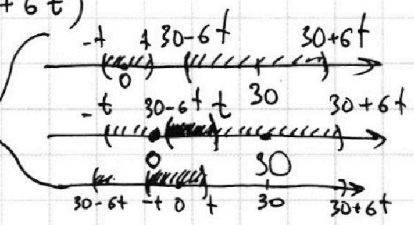 + 6 t )
-t t 30-6t 30+6t
0
-t 30-6t t 30 30+6t
0 30
30-6t -t 0 t 30 30+6t